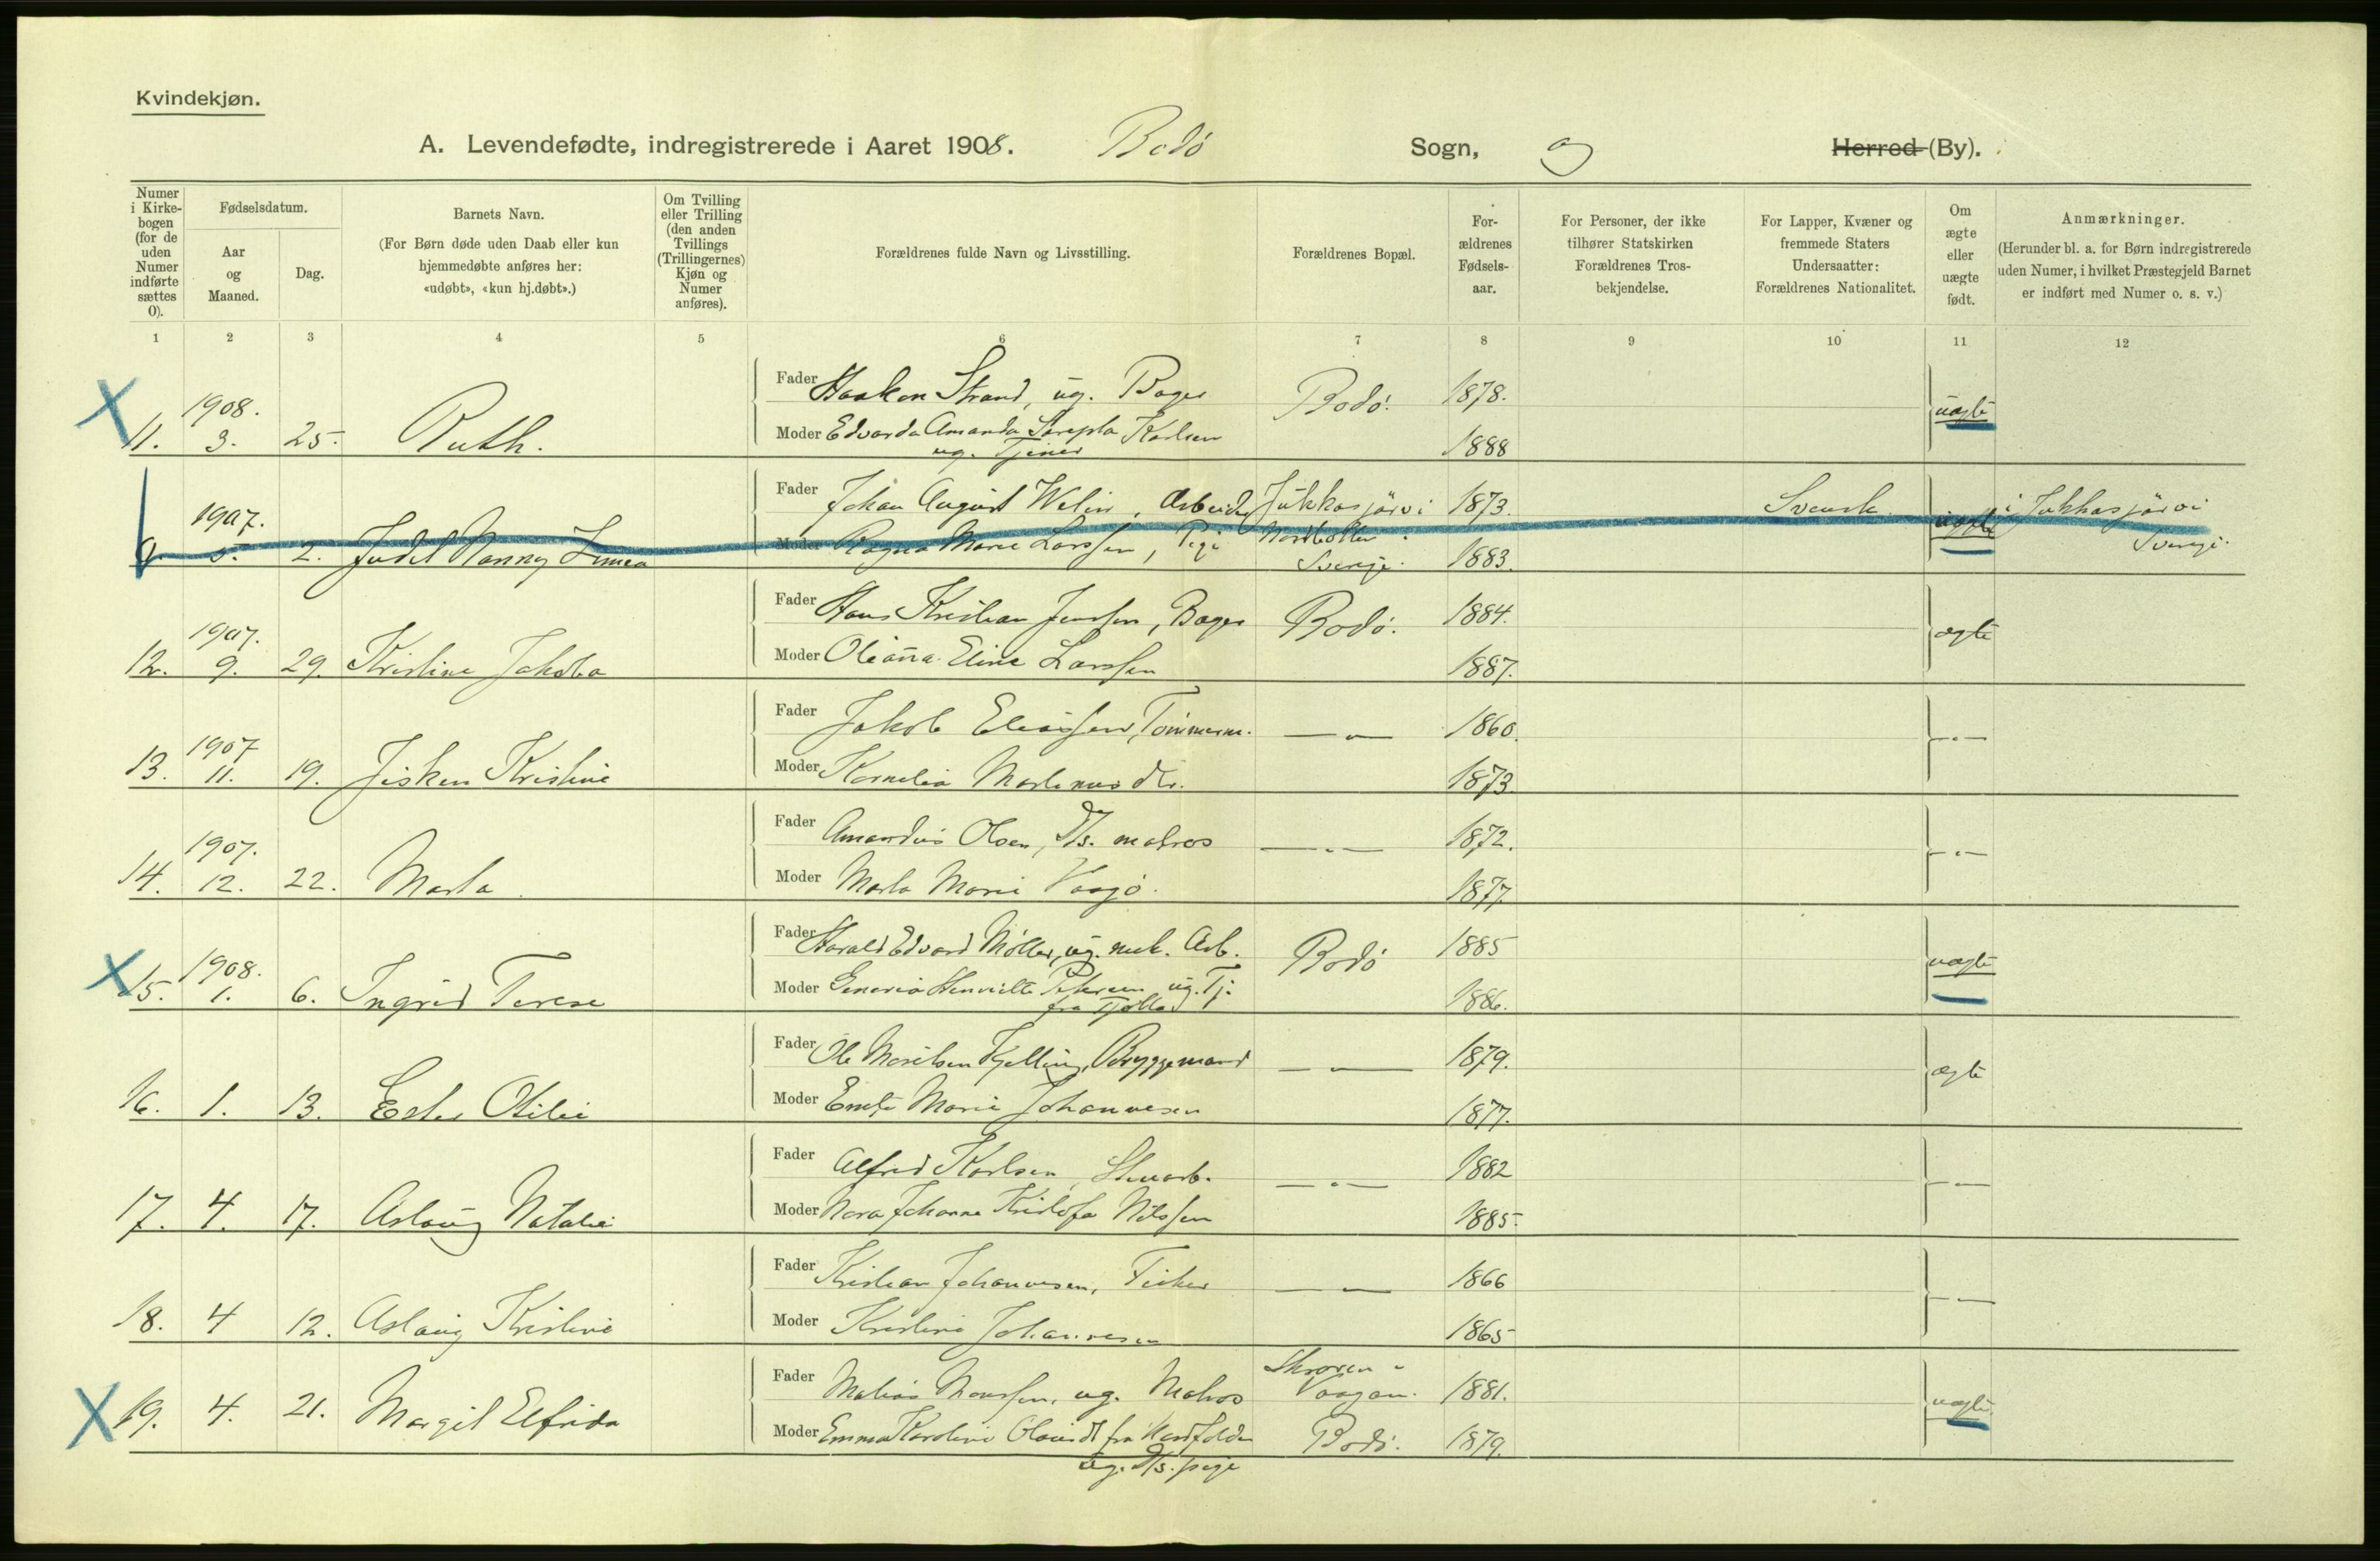 Kvindekjøn.
A. Levendefødte, indregistrerede i Aaret 1908. Bodø Sogn, og Herred (By).
Numer i Kirkebogen (for de uden Numer indførte sættes 0).
Fødselsdatum.
Aar og Maaned.
Dag.
Barnets Navn.
(For Børn døde uden Daab eller kun hjemmedøbte anføres her: «udøbt», «kun hj.døbt».)
Om Tvilling eller Trilling (den anden Tvillings (Trillingernes) Kjøn og Numer anføres).
Forældrenes fulde Navn og Livsstilling.
Forældrenes Bopæl.
For-ældrenes Fødsels-aar.
For Personer, der ikke tilhører Statskirken Forældrenes Tros-bekjendelse.
For Lapper, Kvæner og fremmede Staters Undersaatter: Forældrenes Nationalitet.
Om ægte eller uægte født.
Anmærkninger.
(Herunder bl. a. for Børn indregistrerede uden Numer, i hvilket Præstegjeld Barnet er indført med Numer o. s. v.)
1 2 3 4 5 6 7 8 9 10 11 12
Fader Haakon Strand, ug. Bager Bodø. 1878. uægte
1908.
11. 3. 25. Ruth. Moder Edvarda Amanda Karlsen 1888
ug. Tjener
Fader Johan August Welin, Arbeider Jukkasjärvi 1873. Svensk uægte i Jukkasjärvi
1907.
5. 2. Judit Nanny Linnea Moder Ragna Marie Larssen, Pige Sverije. 1883. Sverije.
Fader Hans Kristian Jenssen, Bager Bodø. 1884. ægte
1907.
12. 9. 29. Kristine Jakoba Moder Oleanna Eline Larssen 1887.
Fader Jakob Eliassen, Tømmerm. — „ — 1860. — „ —
1907
13. 11. 19. Kristine Moder Kornelia Martinusdtr. 1873.
Fader Amandus Olsen, D/s. matros — „ — 1872. — „ —
1907.
14. 12. 22. Marta. Moder Marta Marie Vaagø. 1877.
Fader Harald Edvard Møller, ug. mek. Arb. Bodø 1885 uægte
1908.
15. 1. 6. Ingrid Terese Moder Henriette Petersen ug. Tj. 1886.
fra
Fader Ole Moritsen Kjelling, Bryggemand — „ — 1879. ægte
16. 1. 13. Ester Otilie Moder Marie Johannesen 1877.
Fader Alfred Karlsen, Stenarb. — „ — 1882 — „ —
17. 4. 17. Aslaug Natalie Moder Nora Johanne Kristofa Nilssen 1885.
Fader Kristian Johannesen, Fisker — „ — 1866 — „ —
18. 4 12. Aslaug Kristine Moder Kristine Johannesen 1865
Skroven i
Fader Matias Monssen, ug. Matros Vaagan. 1881. uægte
19. 4. 21. Margit Elfrida Moder Emma Karoline fra Nordfolden Bodø. 1879.
ug. D/s. pige